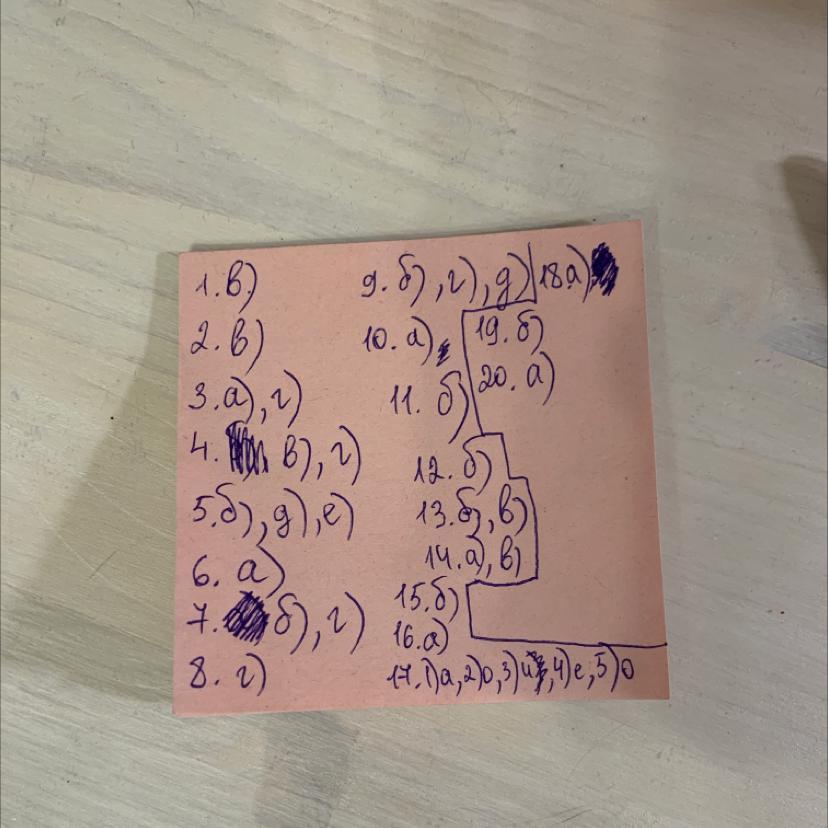 1. в)
2. в)
3. а), г)
4. в), г)
5. б), д), е)
6. а)
7. б), г)
8. г)
9. б), г), д)
10. а),
11. б)
12. б)
13. б), в)
14. а), в)
15. б)
16. а)
17. 1) а, 2) о, 3) и, 4) е, 5) о
18 а)
19. б)
20. а)